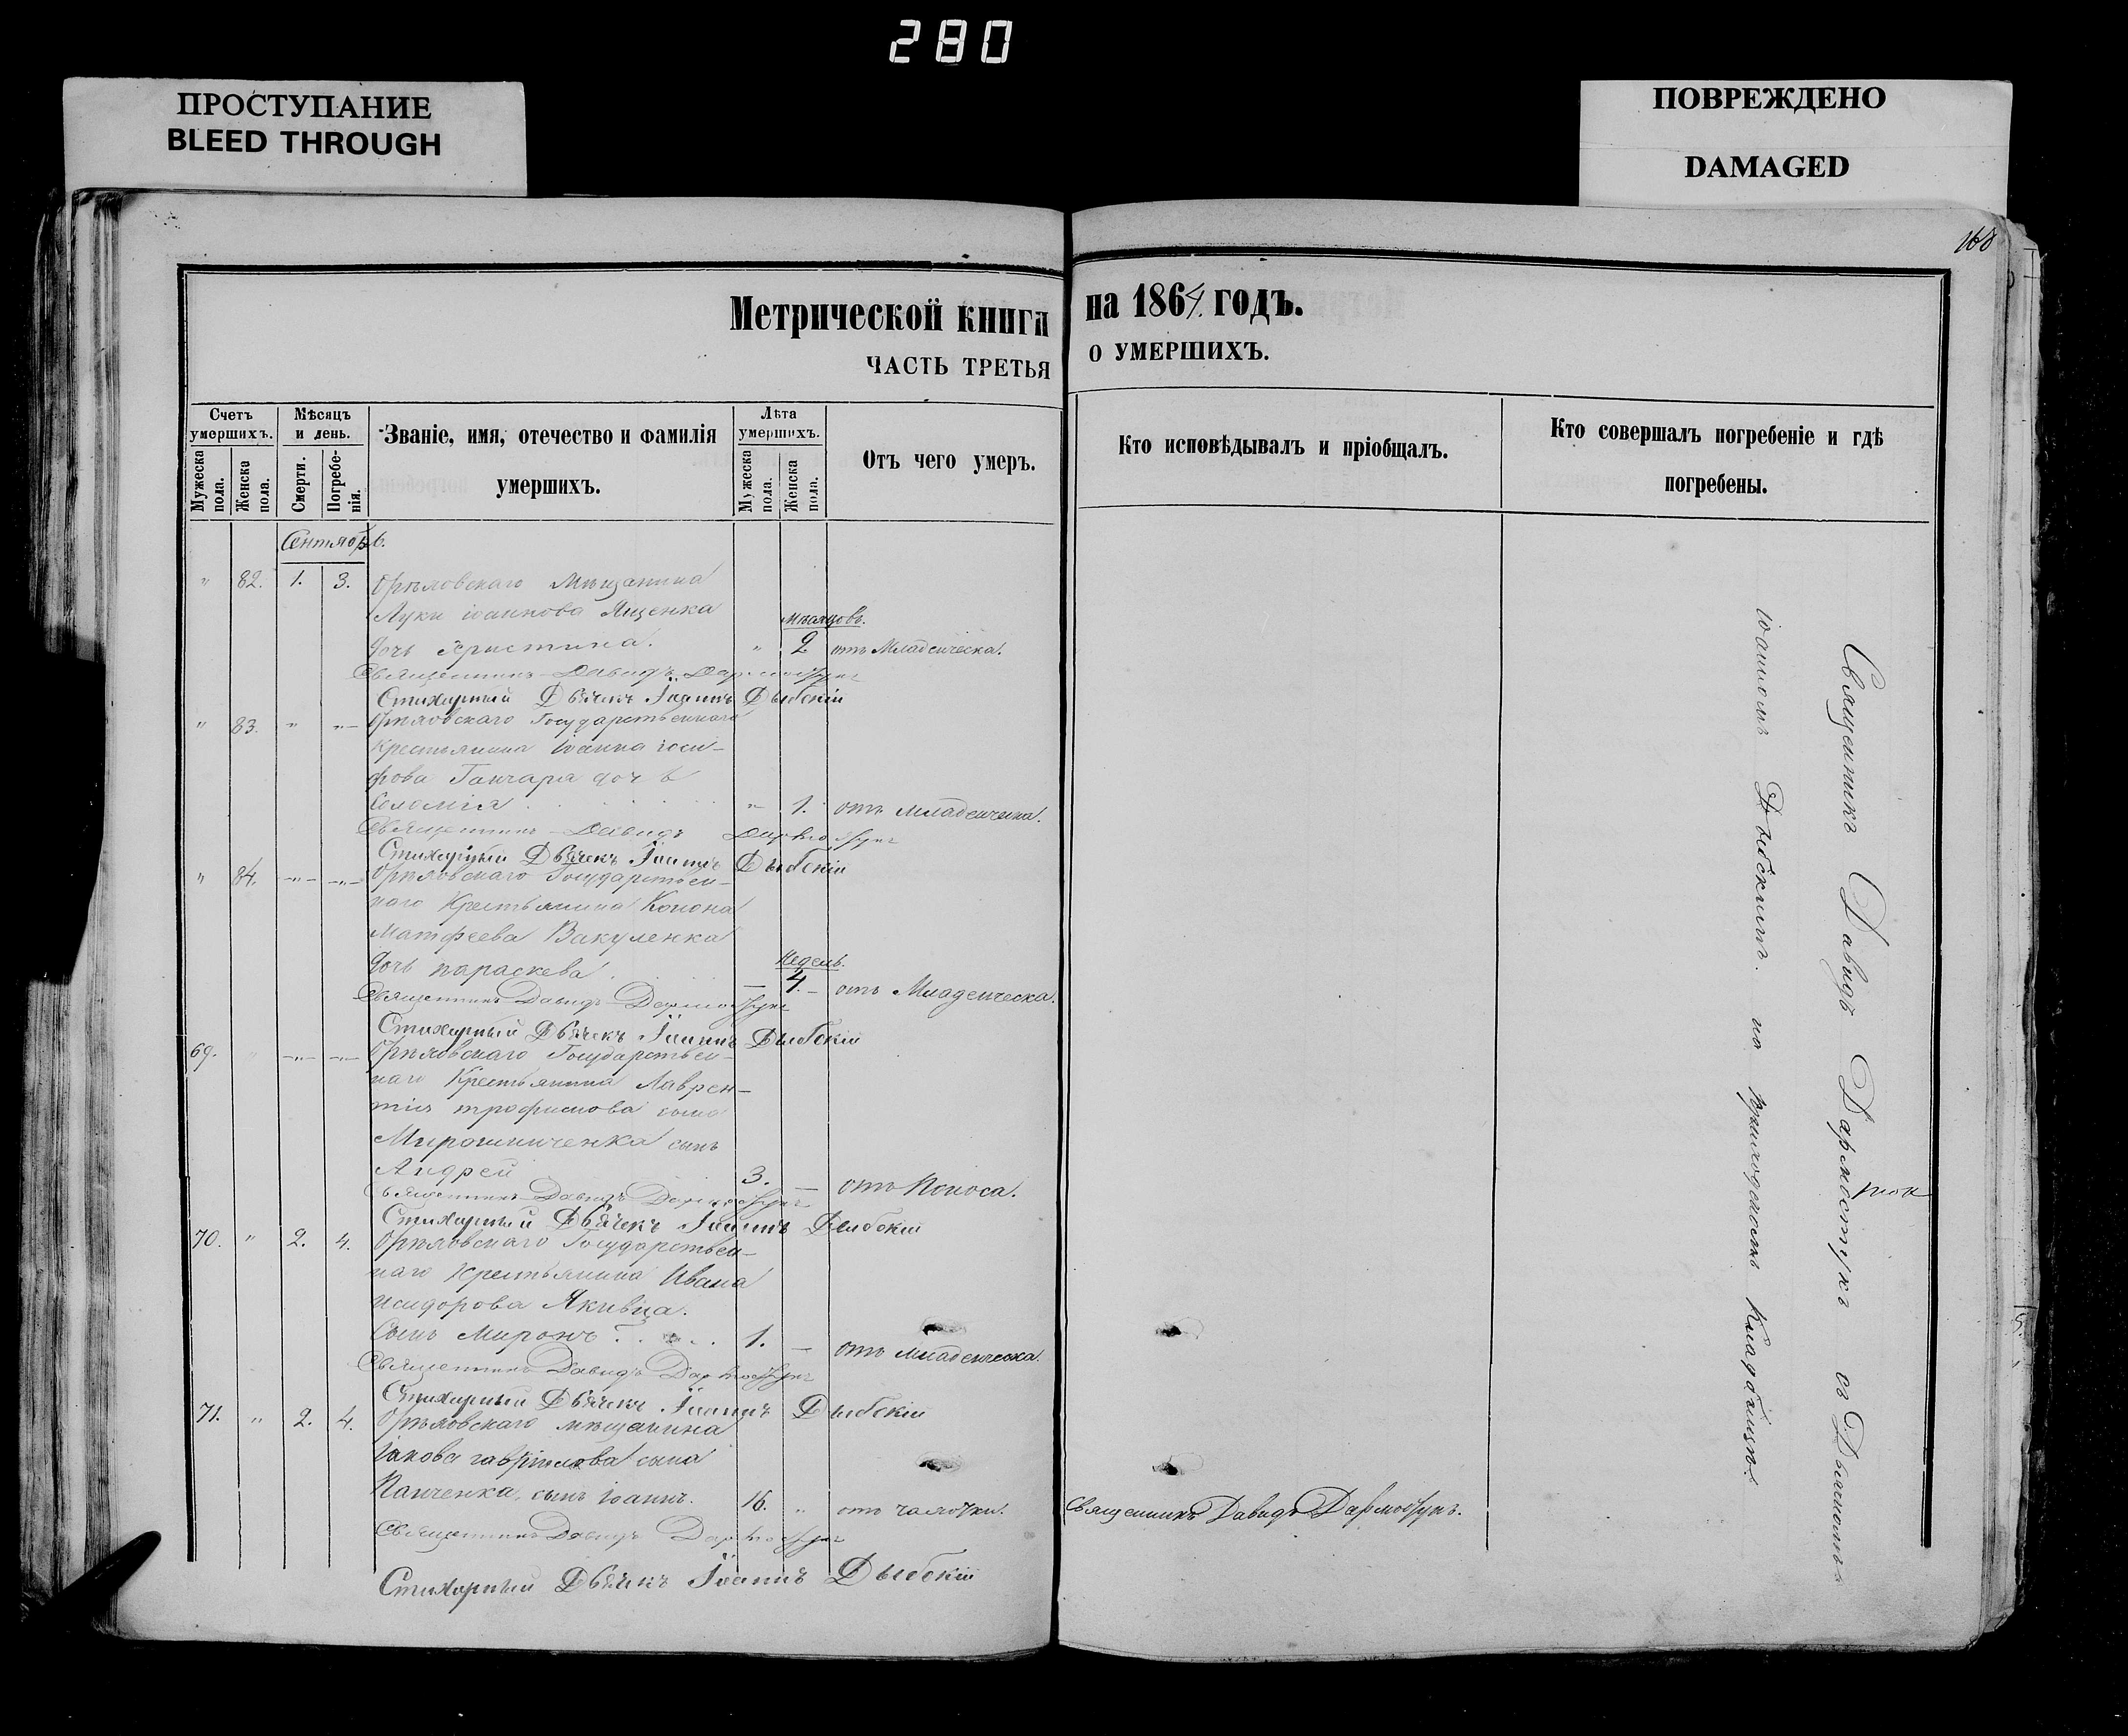 280
ПРОСТУПАНИЕ
BLEED THROUGH
ПОВРЕЖДЕНО
DAMAGED
168
Метрической книги на 1864 годъ.
ЧАСТЬ ТРЕТЬЯ О УМЕРШИХЪ.
Счетъ умершихъ.
Мужеска пола.
Женска пола.
Мѣсяцъ и день.
Смерти.
Погребенія.
Званіе, имя, отечество и фамилія умершихъ.
Лѣта умершихъ.
Мужеска пола.
Женска пола.
Отъ чего умеръ.
Кто исповѣдывалъ и пріобщалъ.
Кто совершалъ погребеніе и гдѣ погребены.
Сентябрь.
" 82. 1. 3. Орѣловскаго Мѣщанина
Луки іоаннова Ященка
мѣсяцовъ.
дочь Христина. " 2 отъ Младенческа.
Священникъ Давидъ Дармостукъ
Стихарный Дьячекъ Іоаннъ Дыбскій
" 83. " " Орѣловскаго Государственнаго
Крестьянина іоанна іоси-
фова Ганчара дочь
Соломія " 1. отъ младенческа.
Священникъ Давидъ Дармостукъ
Стихарный Дьячекъ Іоаннъ Дыбскій
" 84. " " Орѣловскаго Государствен-
наго Крестьянина Конона
Матфеева Вакуленка
Недель.
дочь параскева. 4. отъ Младенческа.
Священникъ Давидъ Дармостукъ
Стихарный Дьячекъ Іоаннъ Дыбскій
69. " " " Орѣловскаго Государствен-
наго Крестьянина Лаврен-
тія трофимова сына
Мирошниченка сынъ
Андрей 3. отъ Поноса.
Священникъ Давидъ Дармостукъ
Стихарный Дьячекъ Іоаннъ Дыбскій
70. " 2. 4. Орѣловскаго Государствен-
наго Крестьянина Ивана
исидорова Якивца.
Сынъ Миронъ 1. отъ младенческа.
Священникъ Давидъ Дармостукъ
Стихарный Дьячекъ Іоаннъ Дыбскій
71. " 2. 4. Орѣловскаго мѣщанина
іакова гавріилова сына
Панченка, сынъ іоаннъ. 16. " отъ чахотки. Священникъ Давидъ Дармостукъ.
Священникъ Давидъ Дармостукъ
Стихарный Дьячекъ Іоаннъ Дыбскій
Священникъ Давидъ Дармостукъ съ Дьячкомъ
іоанномъ Дыбскимъ на приходскомъ кладбищѣ.